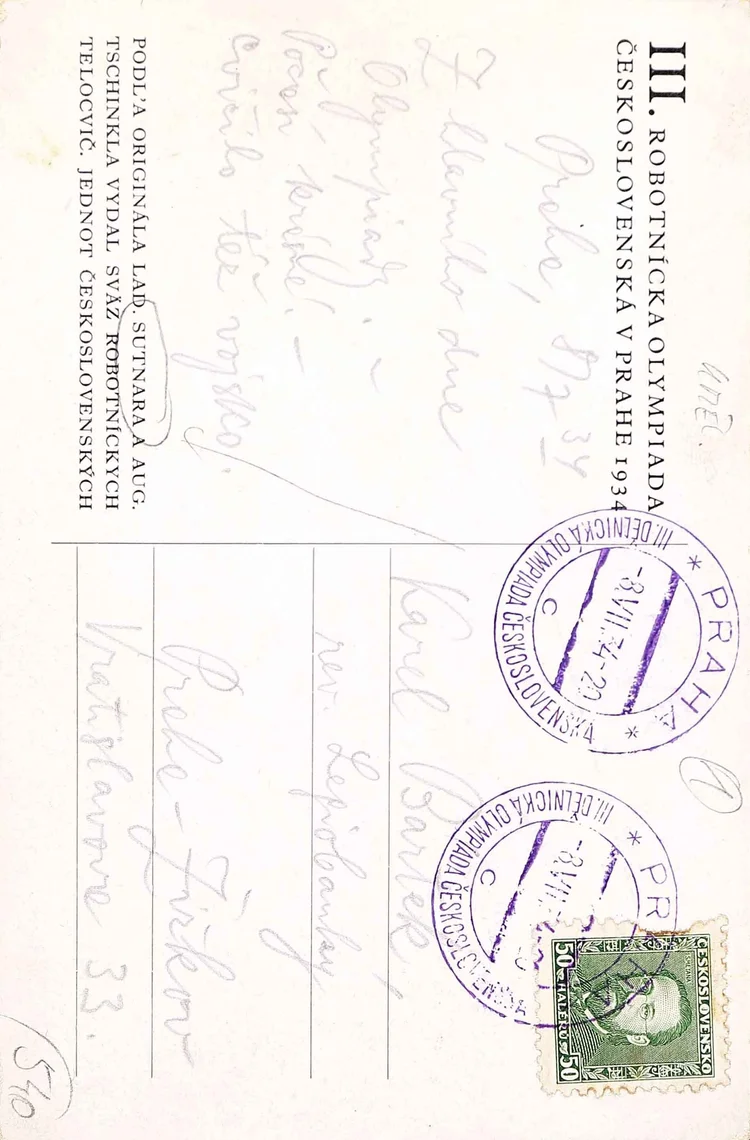 III. ROBOTNÍCKA OLYMPIADA
ČESKOSLOVENSKÁ V PRAHE 1934
Praha, 8/7 34
Z hlavního dne
Olympiady. –
cvičilo též vojsko.
PODL'A ORIGINÁLA LAD. SUTNARA A AUG.
TSCHINKLA VYDAL SVÄZ ROBOTNÍCKYCH
TELOCVIČ. JEDNOT ČESKOSLOVENSKÝCH
UMĚL.
* PRAHA *
III. DĚLNICKÁ OLYMPIADA ČESKOSLOVENSKÁ
-8.VII.34-20
C
* PRAHA
III. DĚLNICKÁ OLYMPIADA ČESKOSLOVENSKÁ
-8.VII.
C
ČESKOSLOVENSKO
50 HALÉŘŮ 50
1
Karel Bartek
rev. Legiobanky
Praha-Žižkov
Vratislavova 33.
540